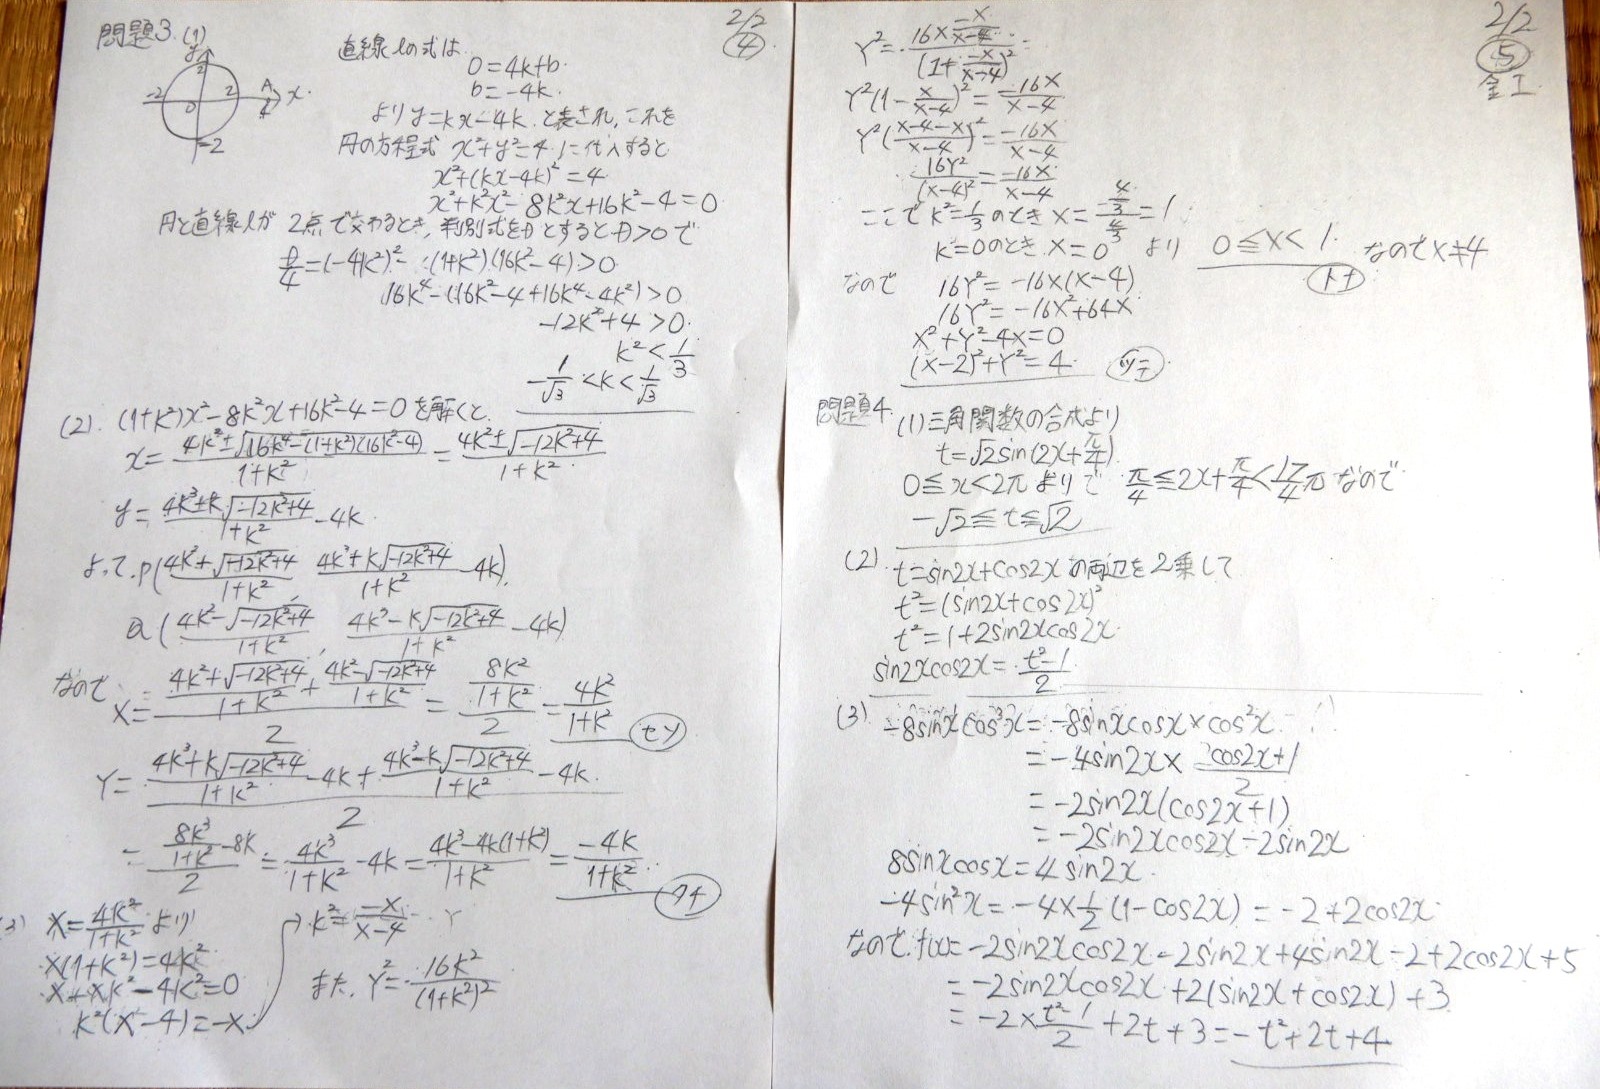 問題3. (1)
2/2
④
y
2
-2
0
2
A
4
x
-2
直線lの式は
0=4k+b
b=-4k
よりy=kx-4k と表され、これを
円の方程式 x²+y²=4 に代入すると
x²+(kx-4k)²=4
x²+k²x²-8k²x+16k²-4=0
円と直線lが 2点で交わるとき、判別式をDとするとD>0で
D/4=(-4k²)²-(1+k²)(16k²-4)>0
16k⁴-(16k²-4+16k⁴-4k²)>0
-12k²+4>0
k²<1/3
-1/√3<k<1/√3
(2). (1+k²)x²-8k²x+16k²-4=0 を解くと
x=(4k²±√(16k⁴-(1+k²)(16k²-4)))/(1+k²)=(4k²±√(-12k²+4))/(1+k²)
y=(4k³±k√(-12k²+4))/(1+k²)-4k
よって、P((4k²+√(-12k²+4))/(1+k²), (4k³+k√(-12k²+4))/(1+k²)-4k)
Q((4k²-√(-12k²+4))/(1+k²), (4k³-k√(-12k²+4))/(1+k²)-4k)
なので X=((4k²+√(-12k²+4))/(1+k²)+(4k²-√(-12k²+4))/(1+k²))/2=(8k²/(1+k²))/2=4k²/(1+k²) セソ
Y=((4k³+k√(-12k²+4))/(1+k²)-4k+(4k³-k√(-12k²+4))/(1+k²)-4k)/2
=(8k³/(1+k²)-8k)/2=4k³/(1+k²)-4k=(4k³-4k(1+k²))/(1+k²)=-4k/(1+k²) タチ
3) X=4k²/(1+k²) より
X(1+k²)=4k²
X+Xk²-4k²=0
k²(X-4)=-X
→k²=-X/(X-4)
また、Y²=16k²/(1+k²)²
2/2
⑤
金工
Y²=(16×-X/(X-4))/(1+-X/(X-4))²
Y²(1-X/(X-4))²=-16X/(X-4)
Y²((X-4-X)/(X-4))²=-16X/(X-4)
16Y²/(X-4)²=-16X/(X-4)
ここでk²=1/3のときX=(4/3)/(4/3)=1
k=0のとき X=0 より 0≦X<1 なのでX≠4
トナ
なので 16Y²=-16X(X-4)
16Y²=-16X²+64X
X²+Y²-4X=0
(X-2)²+Y²=4 ツテ
問題4. (1)三角関数の合成より
t=√2sin(2x+π/4)
0≦x<2π よりで π/4≦2x+π/4<17/4π なので
-√2≦t≦√2
(2) t=sin2x+cos2x の両辺を2乗して
t²=(sin2x+cos2x)²
t²=1+2sin2xcos2x
sin2xcos2x=(t²-1)/2
(3) -8sinxcos³x=-8sinxcosx×cos²x
=-4sin2x×(cos2x+1)/2
=-2sin2x(cos2x+1)
=-2sin2xcos2x-2sin2x
8sinxcosx=4sin2x
-4sin²x=-4×1/2(1-cos2x)=-2+2cos2x
なので、f(x)=-2sin2xcos2x-2sin2x+4sin2x-2+2cos2x+5
=-2sin2xcos2x+2(sin2x+cos2x)+3
=-2×(t²-1)/2+2t+3=-t²+2t+4